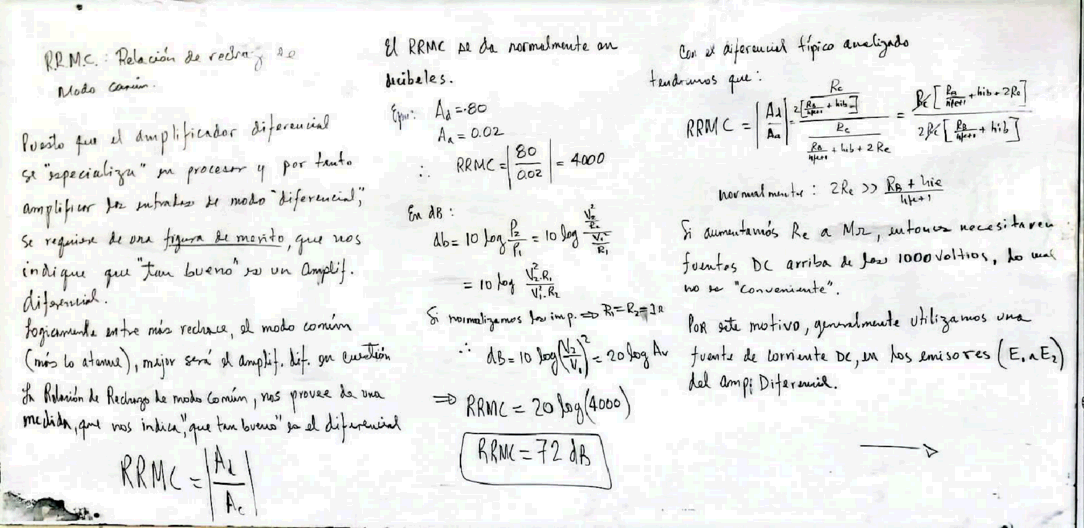 RRMC.: Relación de rechazo de
Modo común.
Puesto que el amplificador diferencial
se "especializa" en procesar y por tanto
amplificar las entradas de modo "diferencial",
se requiere de una figura de merito, que nos
indique que "tan bueno" es un Amplif.
diferencial.
Logicamente entre más rechace, el modo común
(más lo atenue), mejor será el amplif. dif. en cuestión
La Relación de Rechazo de modo común, nos provee de una
medida, que nos indica, "que tan bueno" es el diferencial
RRMC = |Ad / Ac|
El RRMC se da normalmente en
decibeles.
Ejm: Ad = -80
Aa = 0.02
∴ RRMC = |80 / 0.02| = 4000
En dB:
db = 10 log P2/P1 = 10 log (V2²/R2) / (V1²/R1)
= 10 log V2²·R1 / V1²·R2
Si normalizamos las imp. => R1 = R2 = 1Ω
∴ dB = 10 log (V2/V1)² = 20 log Av
=> RRMC = 20 log (4000)
RRMC = 72 dB
Con el diferencial típico analizado
tendremos que:
RRMC = |Ad / Aa| = (Rc / 2[RB/(hfe+1) + hib]) / (Rc / (RB/(hfe+1) + hib + 2Re)) = Rc [RB/(hfe+1) + hib + 2Re] / 2Rc [RB/(hfe+1) + hib]
normalmente: 2Re >> (RB + hie) / (hfe+1)
Si aumentamós Re a MΩ, entonces necesitaremos
fuentes DC arriba de los 1000 voltios, lo cual
no es "conveniente".
Por este motivo, generalmente utilizamos una
fuente de corriente DC, en los emisores (E1 ∧ E2)
del ampi Diferencial.